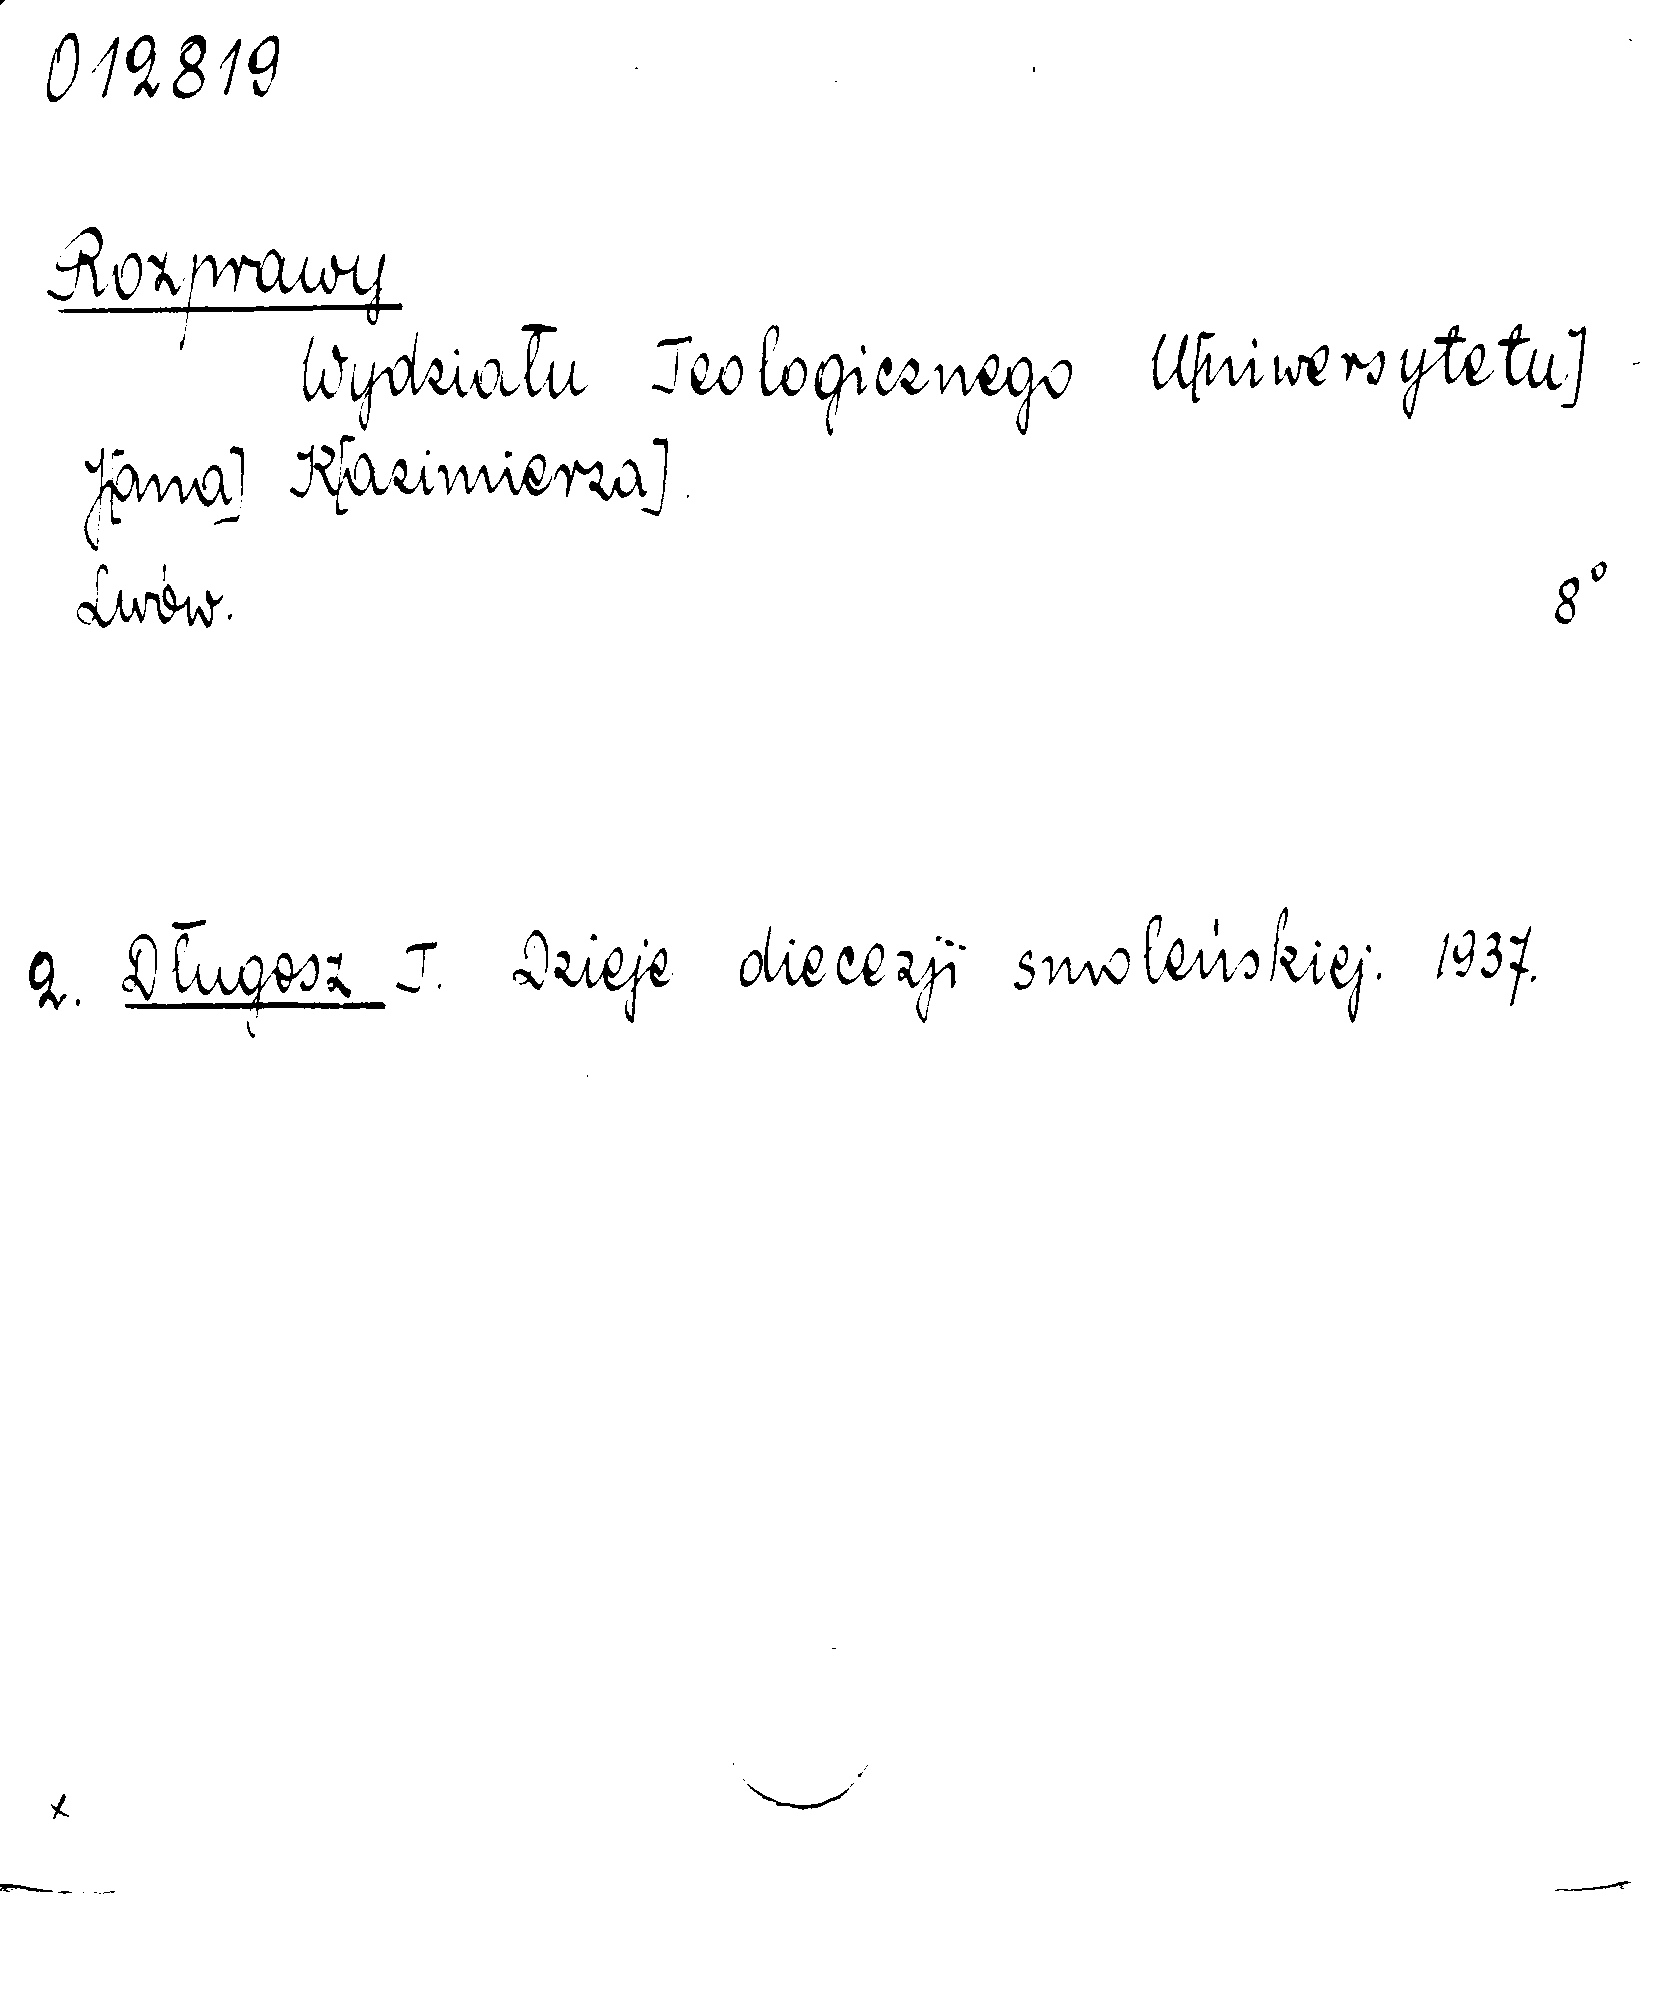 012819
Rozprawy
Wydziału Teologicznego U[niwersytetu]
J[ana] K[azimierza].
Lwów. 8°
2. Długosz T. Dzieje diecezji smoleńskiej. 1937.
x